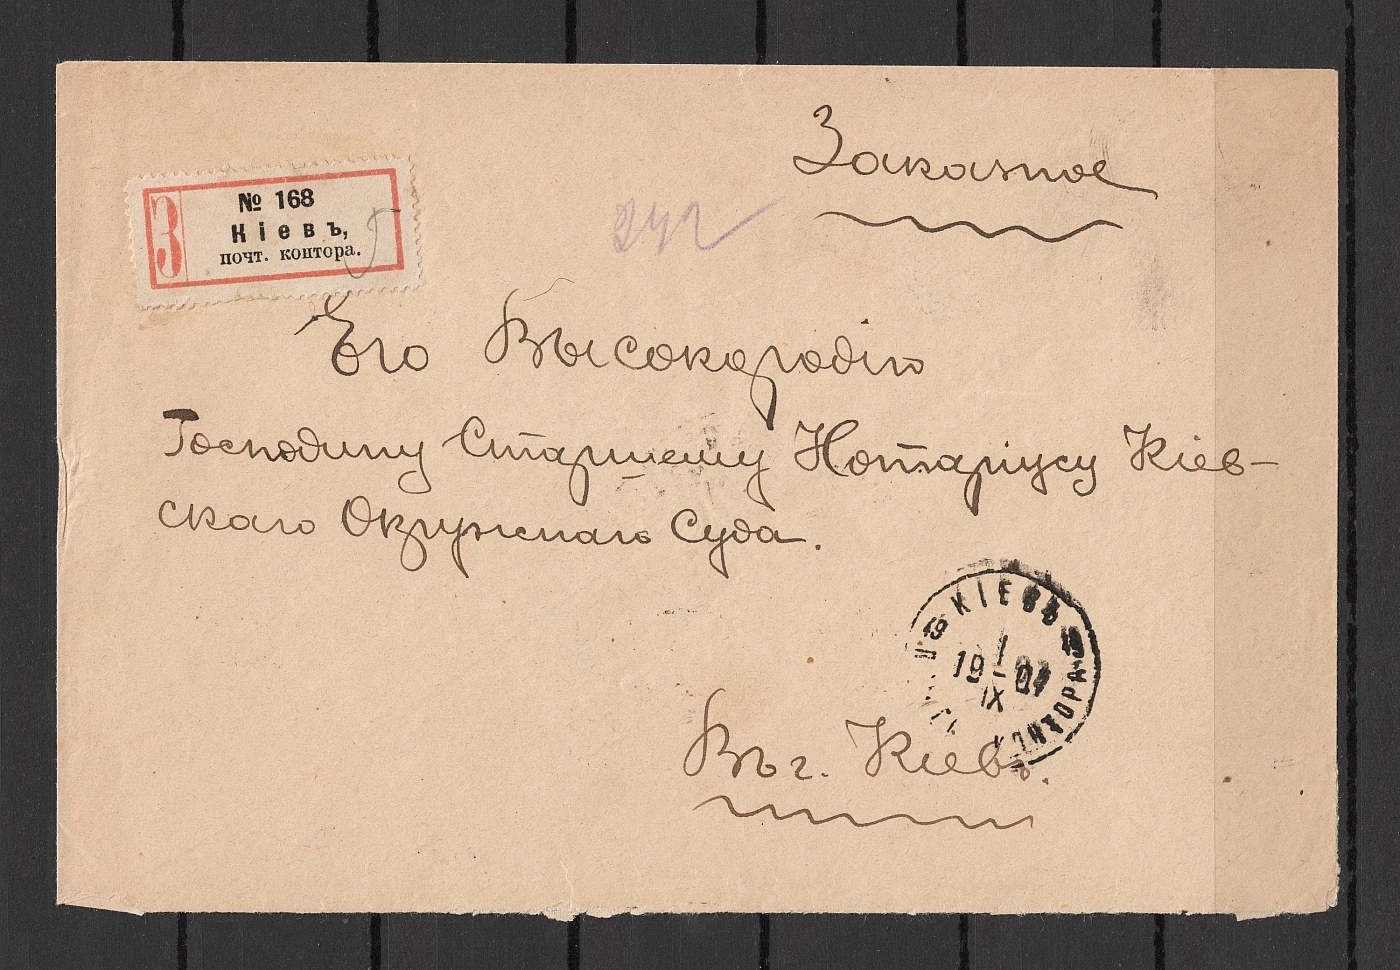 Заказное
З
№ 168
Кіевъ,
почт. контора.
Его Высокородію
Господину Старшему Нотаріусу Кіев-
скаго Окружнаго Суда.
КІЕВЪ
19 19
1
19-07
IX
КОНТОРА
Въ г. Кіевъ.